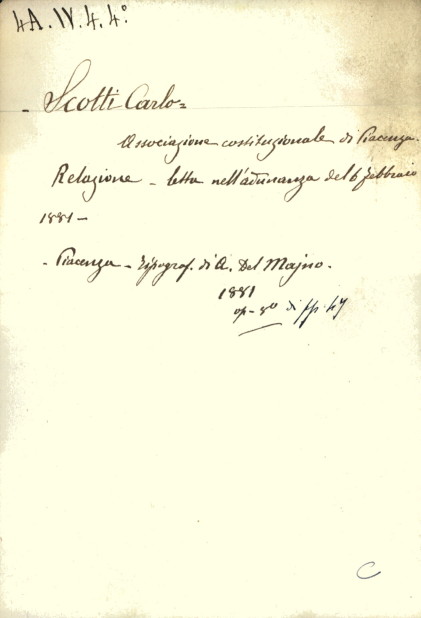 4A.IV.4.4°
- Scotti Carlo =
Associazione costituzionale di Piacenza.
Relazione - letta nell'adunanza del 6 febbraio
1881 -
- Piacenza - Tipograf. di A. Del Majno.
1881
op - 8° di pp. 47
C